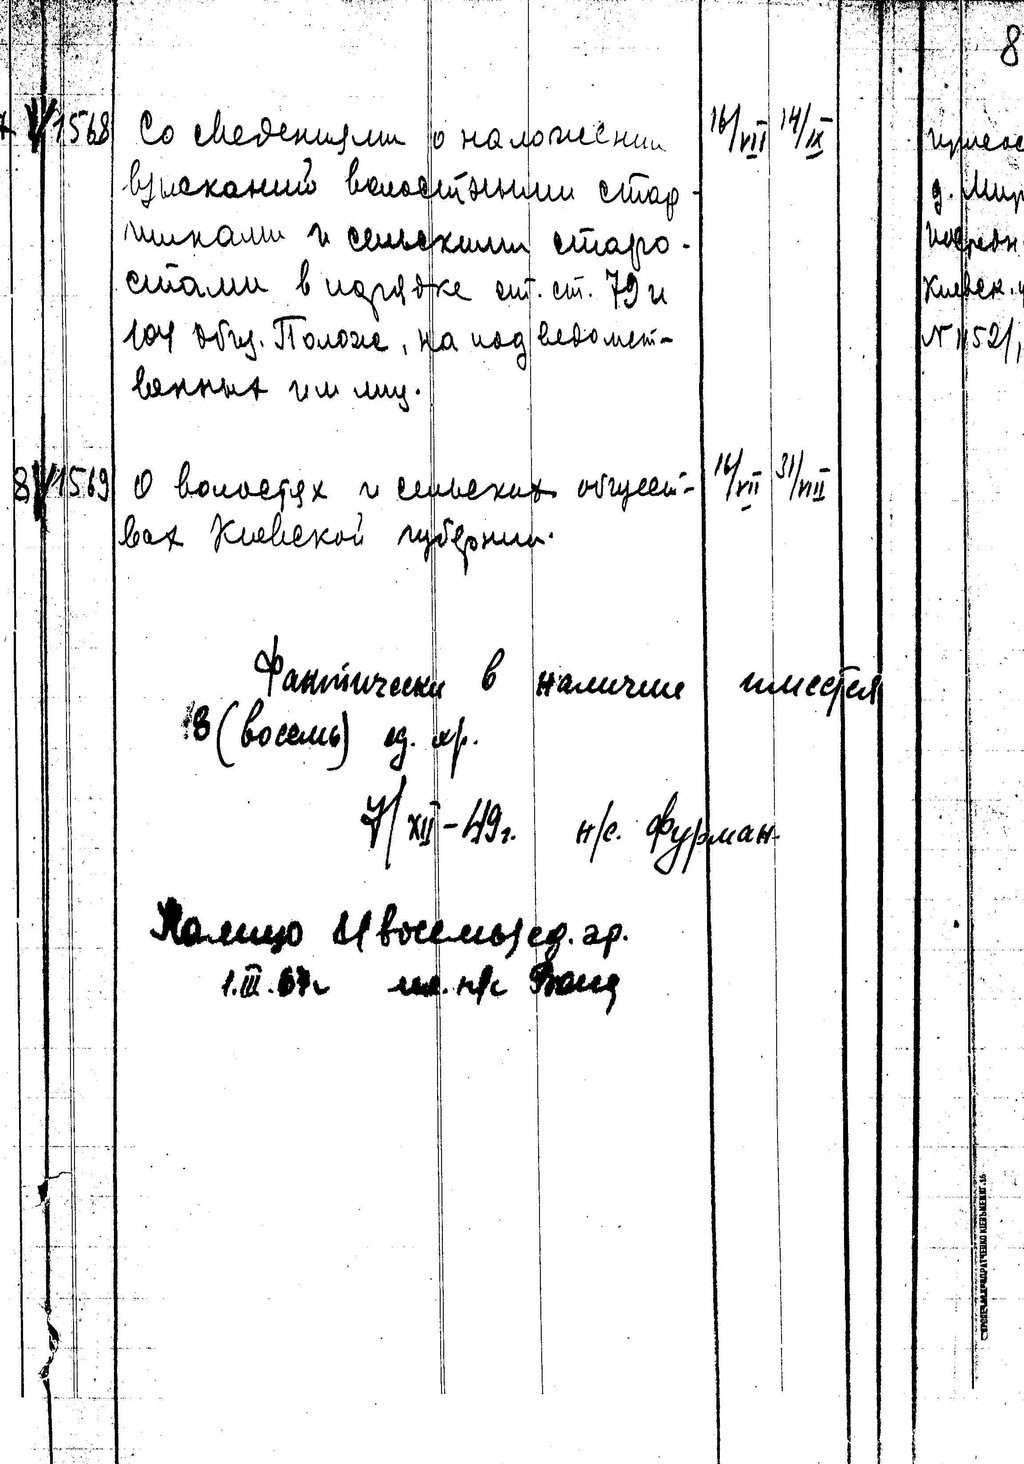 8
1568 Со сведениями о наложении 16/VII 14/IX
взысканий волостными стар-
шинами и сельскими старо-
стами в порядке ст. ст. 79 и
104 общ. Полож., на подведомст-
венных им лиц.
д. Мир
Киевск. у
N 1152/1
8 1569 О волостях и сельских общест- 16/VII 31/VIII
вах Киевской губернии.
Фактически в наличие имеется
8 (восемь) ед. хр.
7/XII-49г. н/с. Фурман
восемь) ед. хр.
1.III.67г мл. н/с